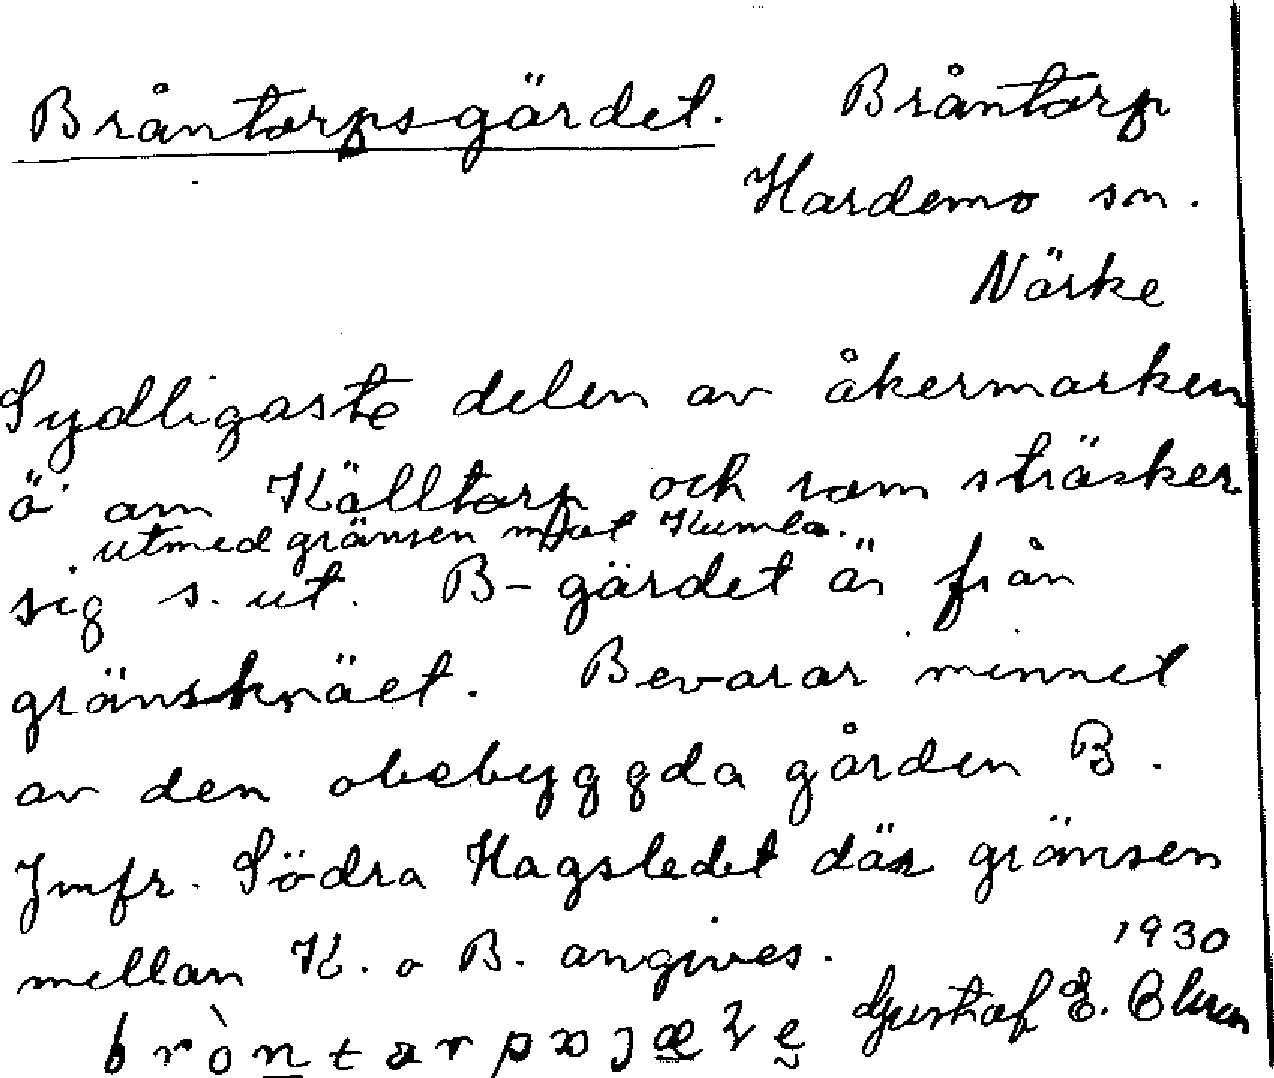 Bråntorpsgärdet. Bråntorp
Hardemo sn.
Närke
Sydligaste delen av åkermarken
ö om Källtorp och som sträcker
utmed gränsen mot Kumla.
sig s. ut. B-gärdet är från
gränsknäet. Bevarar minnet
av den obebyggda gården B.
Jmfr. Södra Hagsledet där gränsen
mellan K. o B. angives.
1930
Gustaf E.